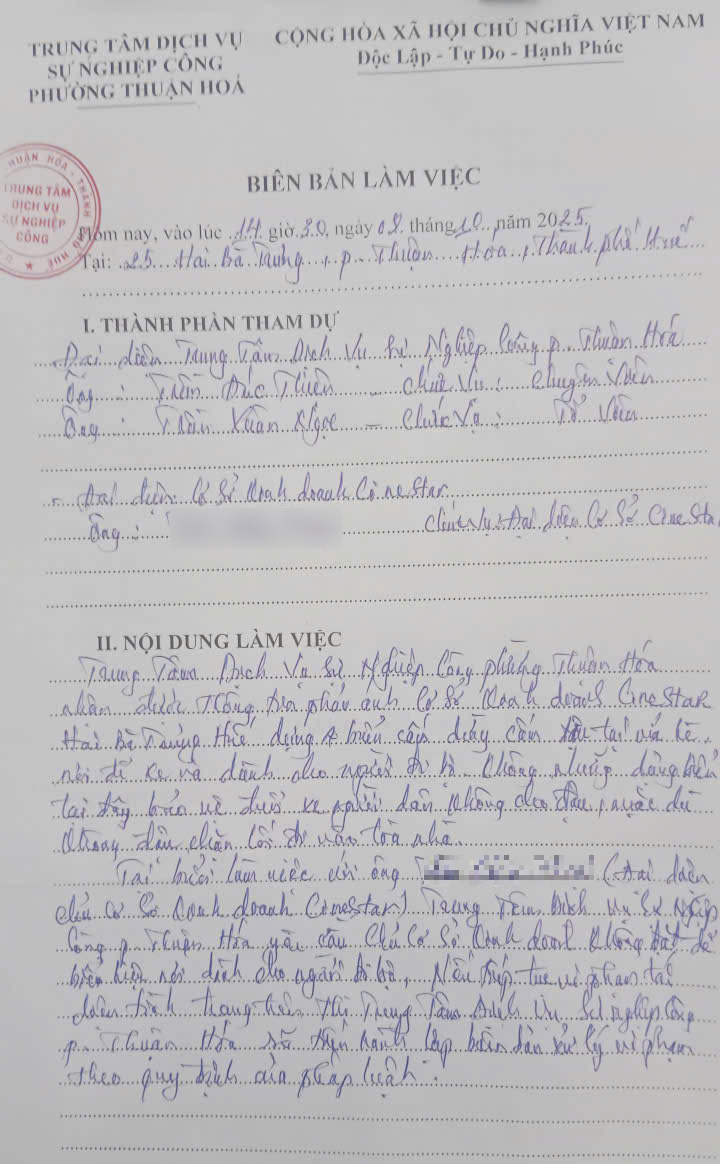 TRUNG TÂM DỊCH VỤ
SỰ NGHIỆP CÔNG
PHƯỜNG THUẬN HOÁ
CỘNG HÒA XÃ HỘI CHỦ NGHĨA VIỆT NAM
Độc Lập - Tự Do - Hạnh Phúc
TRUNG TÂM
DỊCH VỤ
SỰ NGHIỆP
CÔNG
BIÊN BẢN LÀM VIỆC
Hôm nay, vào lúc 14 giờ 30, ngày 08 tháng 10 năm 2025.
Tại: 25 Hai Bà Trưng, p. Thuận Hóa, Thành phố Huế
I. THÀNH PHẦN THAM DỰ
Đại diện Trung Tâm Dịch Vụ Sự Nghiệp Công p. Thuận Hóa
Ông : Trần Đức Thiện - Chức Vụ : Chuyên Viên
Ông : Trần Xuân Ngọc - Chức Vụ : Tổ Viên
- Đại diện Cơ Sở Kinh doanh CineStar
Ông : Chức vụ : Đại diện Cơ Sở CineSta
II. NỘI DUNG LÀM VIỆC
Trung Tâm Dịch Vụ Sự Nghiệp Công phường Thuận Hóa
nhận được thông tin phản ánh Cơ Sở Kinh doanh CineStar
Hai Bà Trưng Huế dựng biển cấm dây cấm tại vỉa hè
nơi để xe và dành cho người đi bộ. Không những dùng biển
tại đây bảo vệ đuổi xe người dân không cho đậu, mặc dù
không đậu chắn lối đi vào tòa nhà.
Tại buổi làm việc với ông (Đại diện
chủ cơ sở Kinh doanh CineStar) Trung Tâm Dịch Vụ Sự Nghiệp
Công p. Thuận Hóa yêu cầu Chủ Cơ Sở Kinh doanh không đặt để
biển hiệu nơi dành cho người đi bộ, Nếu tiếp tục vi phạm tái
diễn tình trạng trên Thì Trung Tâm Dịch Vụ Sự nghiệp Công
p. Thuận Hóa sẽ tiến hành lập biên bản xử lý vi phạm
theo quy định của pháp luật.